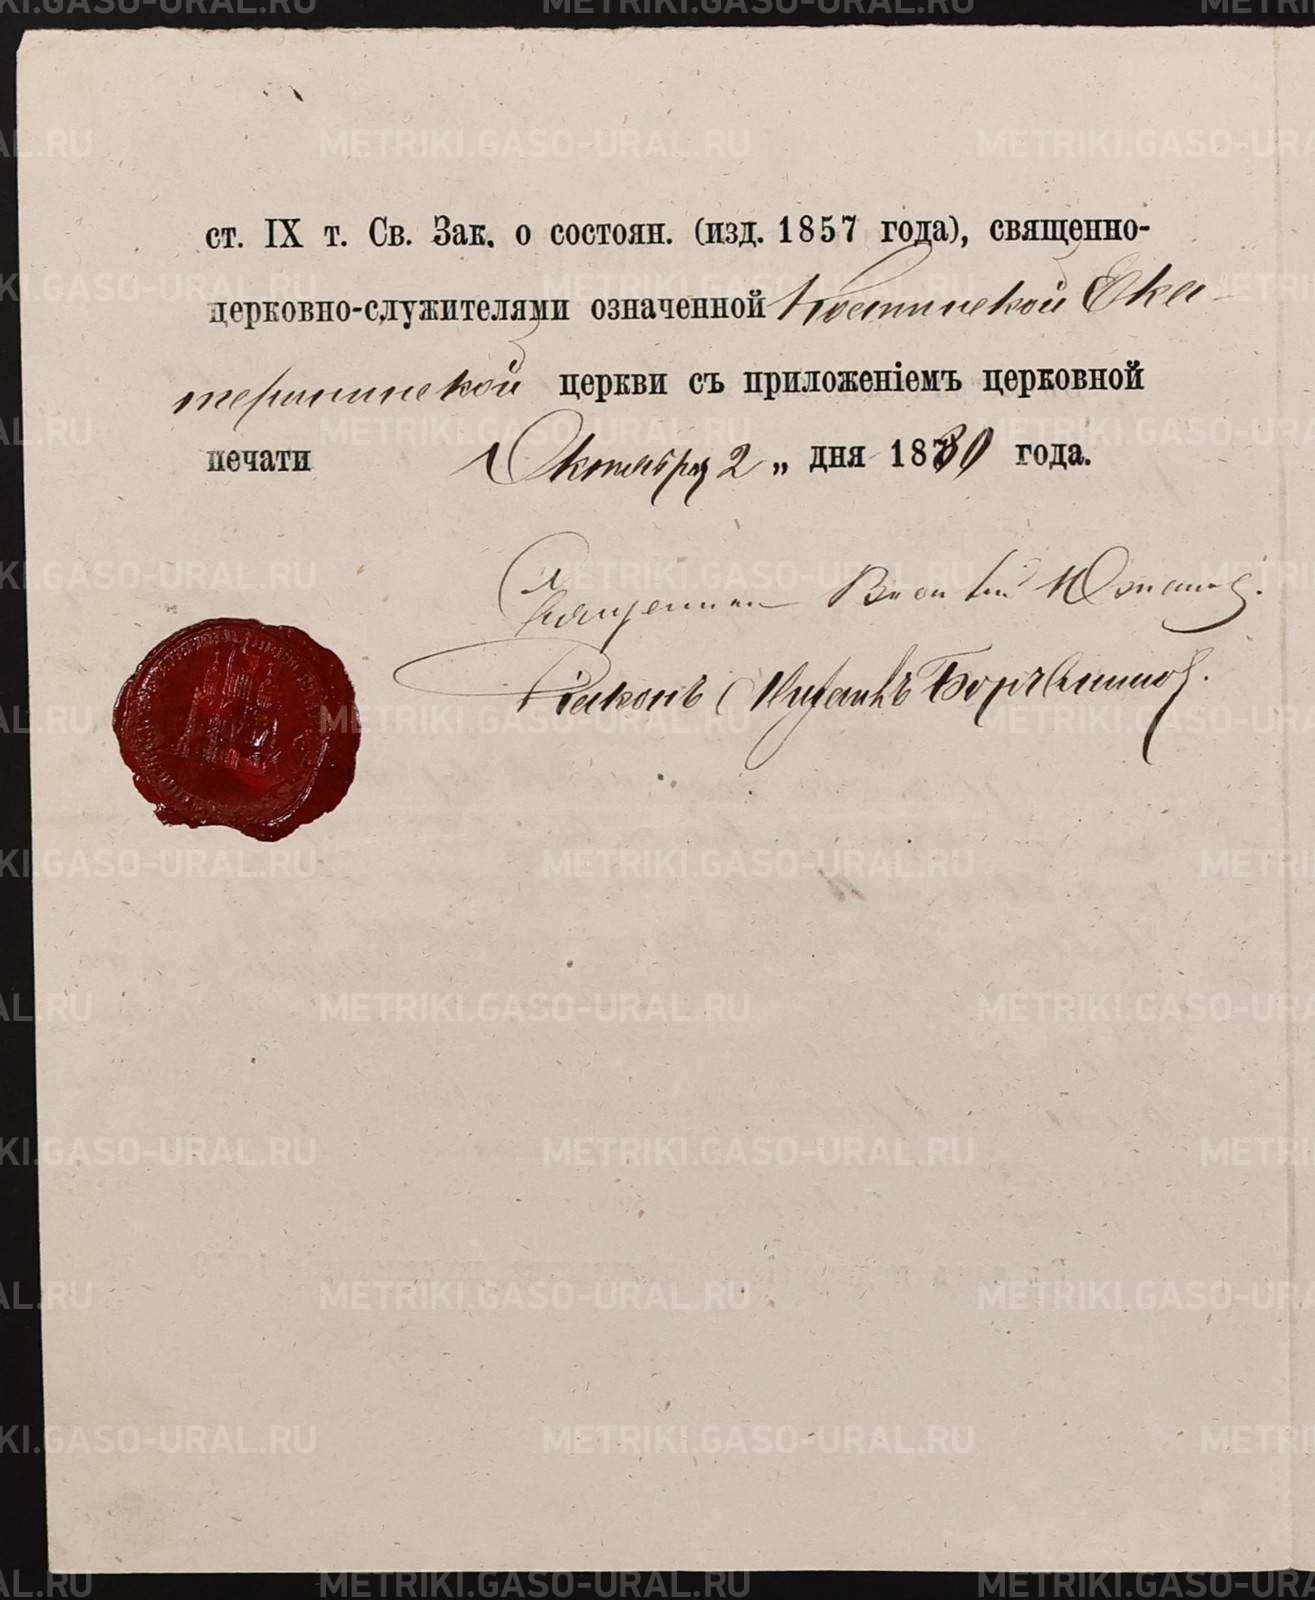 ст. IX т. Св. Зак. о состоян. (изд. 1857 года), священно-
церковно-служителями означенной Костинской Ека-
терининской церкви съ приложеніемъ церковной
печати Октября 2 „ дня 1880 года.
Священник Василій
Діаконъ
METRIKI.GASO-URAL.RU